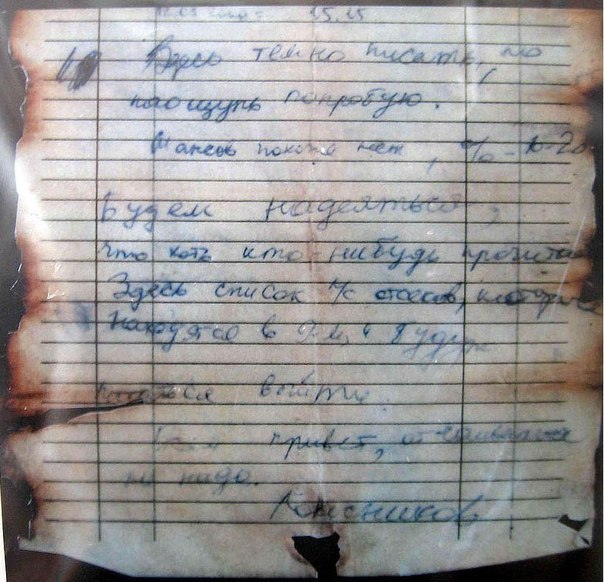 Здесь темно писать, но
наощупь попробую.
Шансов похоже нет, % 10-20
Будем надеяться,
что хоть кто-нибудь прочитает
Здесь список л/с отсеков, которые
находятся в 9-м и будут
пытаться выйти.
Всем привет, отчаиваться
не надо.
Колесников